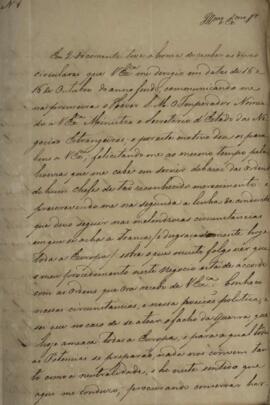 N 1
Illmo Exmo Snr
Em 2 do corrente tive a honra de receber as duas
circulares que V Exa me dirigio em datas de 16 e
18 de Outubro do anno findo, communicando me
na primeira o Haver S. M. O Imperador Nomea
do a V Exa Ministro e Secretario d'Estado dos Ne
gocios Estrangeiros, e por este motivo dou os para
bens a V Exa, felicitando me ao mesmo tempo pela
honra que me cabe em servir debaixo das ordens
de hum Chefe de tão reconhecido merecimento: e
prescrevendo me na segunda a linha de conducta
que devo seguir nas melindrosas circunstancias
em que se acha a França, e desgraçadamente hoje
toda a Europa; sobre o que muito folgo ver que
o meu procedimento neste negocio está de acordo
com as ordens que ora recebo de V Exa. Conheço
nossas circunstancias, e nossa posição politica; e
sei que no caso de se atear o facho da Guerra que
hoje ameaça toda a Europa, e para a qual todas
as Potencias se preparão, nada nos convem tan
to como a neutralidade, e he neste sentido que
aqui me conduzo, procurando conservar har